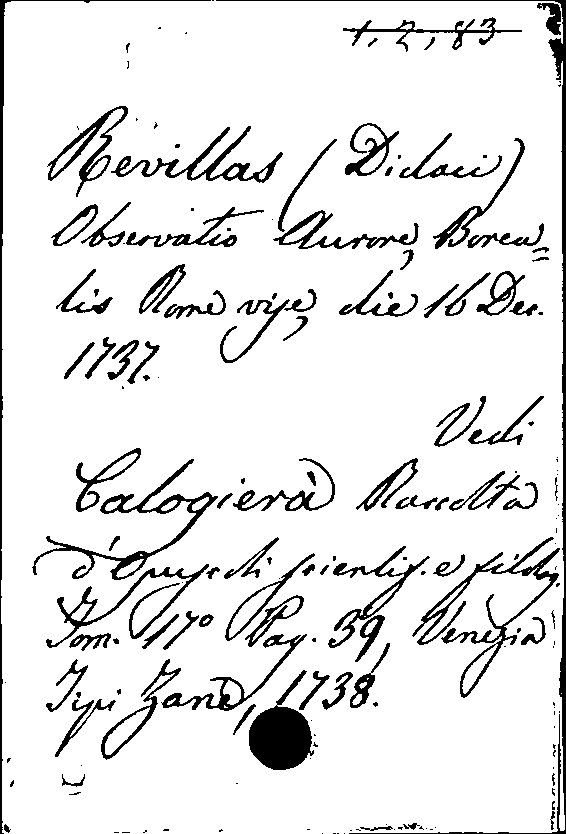 1, 2, 83
Revillas (Didaci)
Observatio Aurorę Borea=
lis Rome visę, die 16 Dec.
1737.
Vedi
Calogierà Raccolta
d'Opuscoli scientif. e filolog.
Tom. 17º Pag. 39, Venezia
Tipi Zane, 1738.